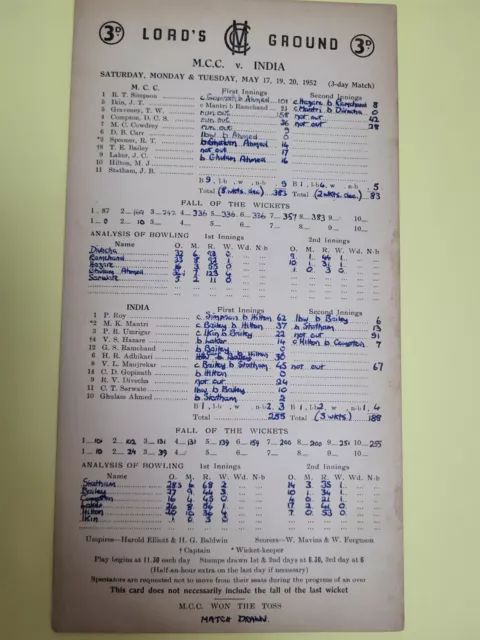 3D. LORD'S MCC GROUND 3D.
M.C.C. v. INDIA
SATURDAY, MONDAY & TUESDAY, MAY 17, 19, 20, 1952 (3-day Match)
M. C. C. First Innings Second Innings
1 R. T. Simpson b Ahmed 101 c Hazare b Ramchand 8
5 Ikin, J. T. c Mantri b Ramchand c Mantri b Divecha 0
Graveney, T. W. run out 158 not out 42
4 Compton, D. C. S. run out 36 not out 28
7 M. C. Cowdrey run out 9
6 D. B. Carr lbw b Ahmed 0
Spooner, R. T. b Ghulam Ahmed 14
T. E. Bailey not out 17
9 Laker, J. C. b Ghulam Ahmed 16
10 Hilton, M. J.
11 Statham, J. B.
B 9, l-b , w , n-b 9 B 1, l-b 4, w , n-b 5
Total (8 wkts. dec) 383 Total (2 wkts. dec) 83
FALL OF THE WICKETS
1—87 2— 3—242 4—336 5—336 6—336 7—357 8—383 9— 10—
1—0 2—10 3— 4— 5— 6— 7— 8— 9— 10—
ANALYSIS OF BOWLING 1st Innings 2nd Innings
Name O. M. R. W. Wd. N-b O. M. R. W. Wd. N-b
Divecha
Ramchand
Hazare
Ghulam Ahmed
Sarwate
INDIA First Innings Second Innings
1 P. Roy c. Simpson b Hilton 62 lbw b Bailey 6
*2 M. K. Mantri c Bailey b Hilton 37 b Statham 13
3 P. R. Umrigar c Ikin b Bailey 22 not out 91
†4 V. S. Hazare b Laker 14 c Hilton b Compton 7
12 G. S. Ramchand b Bailey 0
6 H. R. Adhikari b Bailey 30
8 V. L. Manjrekar c Bailey b Statham 45 not out 67
14 C. D. Gopinath b Hilton 0
9 R. V. Divecha not out 24
11 C. T. Sarwate lbw b Bailey 10
10 Ghulam Ahmed b Statham 2
B 1, l-b , w , n-b 2 3 B 1, l-b 2, w , n-b 1, 4
Total 255 Total (3 wkts) 188
FALL OF THE WICKETS
1—101 2—102 3—131 4—131 5—139 6—159 7—200 8—200 9—251 10—255
1—10 2—24 3—39 4— 5— 6— 7— 8— 9— 10—
ANALYSIS OF BOWLING 1st Innings 2nd Innings
Name O. M. R. W. Wd. N-b O. M. R. W. Wd. N-b
Statham 14 3 35 1
Bailey 27 9 44 3 10 1 34 1
Compton 6 0 21 1
Laker 17 2 41 0
Hilton 7 0 53 0
Ikin 1 0 3 0
Umpires—Harold Elliott & H. G. Baldwin Scorers—W. Mavins & W. Ferguson
† Captain * Wicket-keeper
Play begins at 11.30 each day Stumps drawn 1st & 2nd days at 6.30, 3rd day at 6
(Half-an-hour extra on the last day if necessary)
Spectators are requested not to move from their seats during the progress of an over
This card does not necessarily include the fall of the last wicket
M.C.C. WON THE TOSS
MATCH DRAWN.